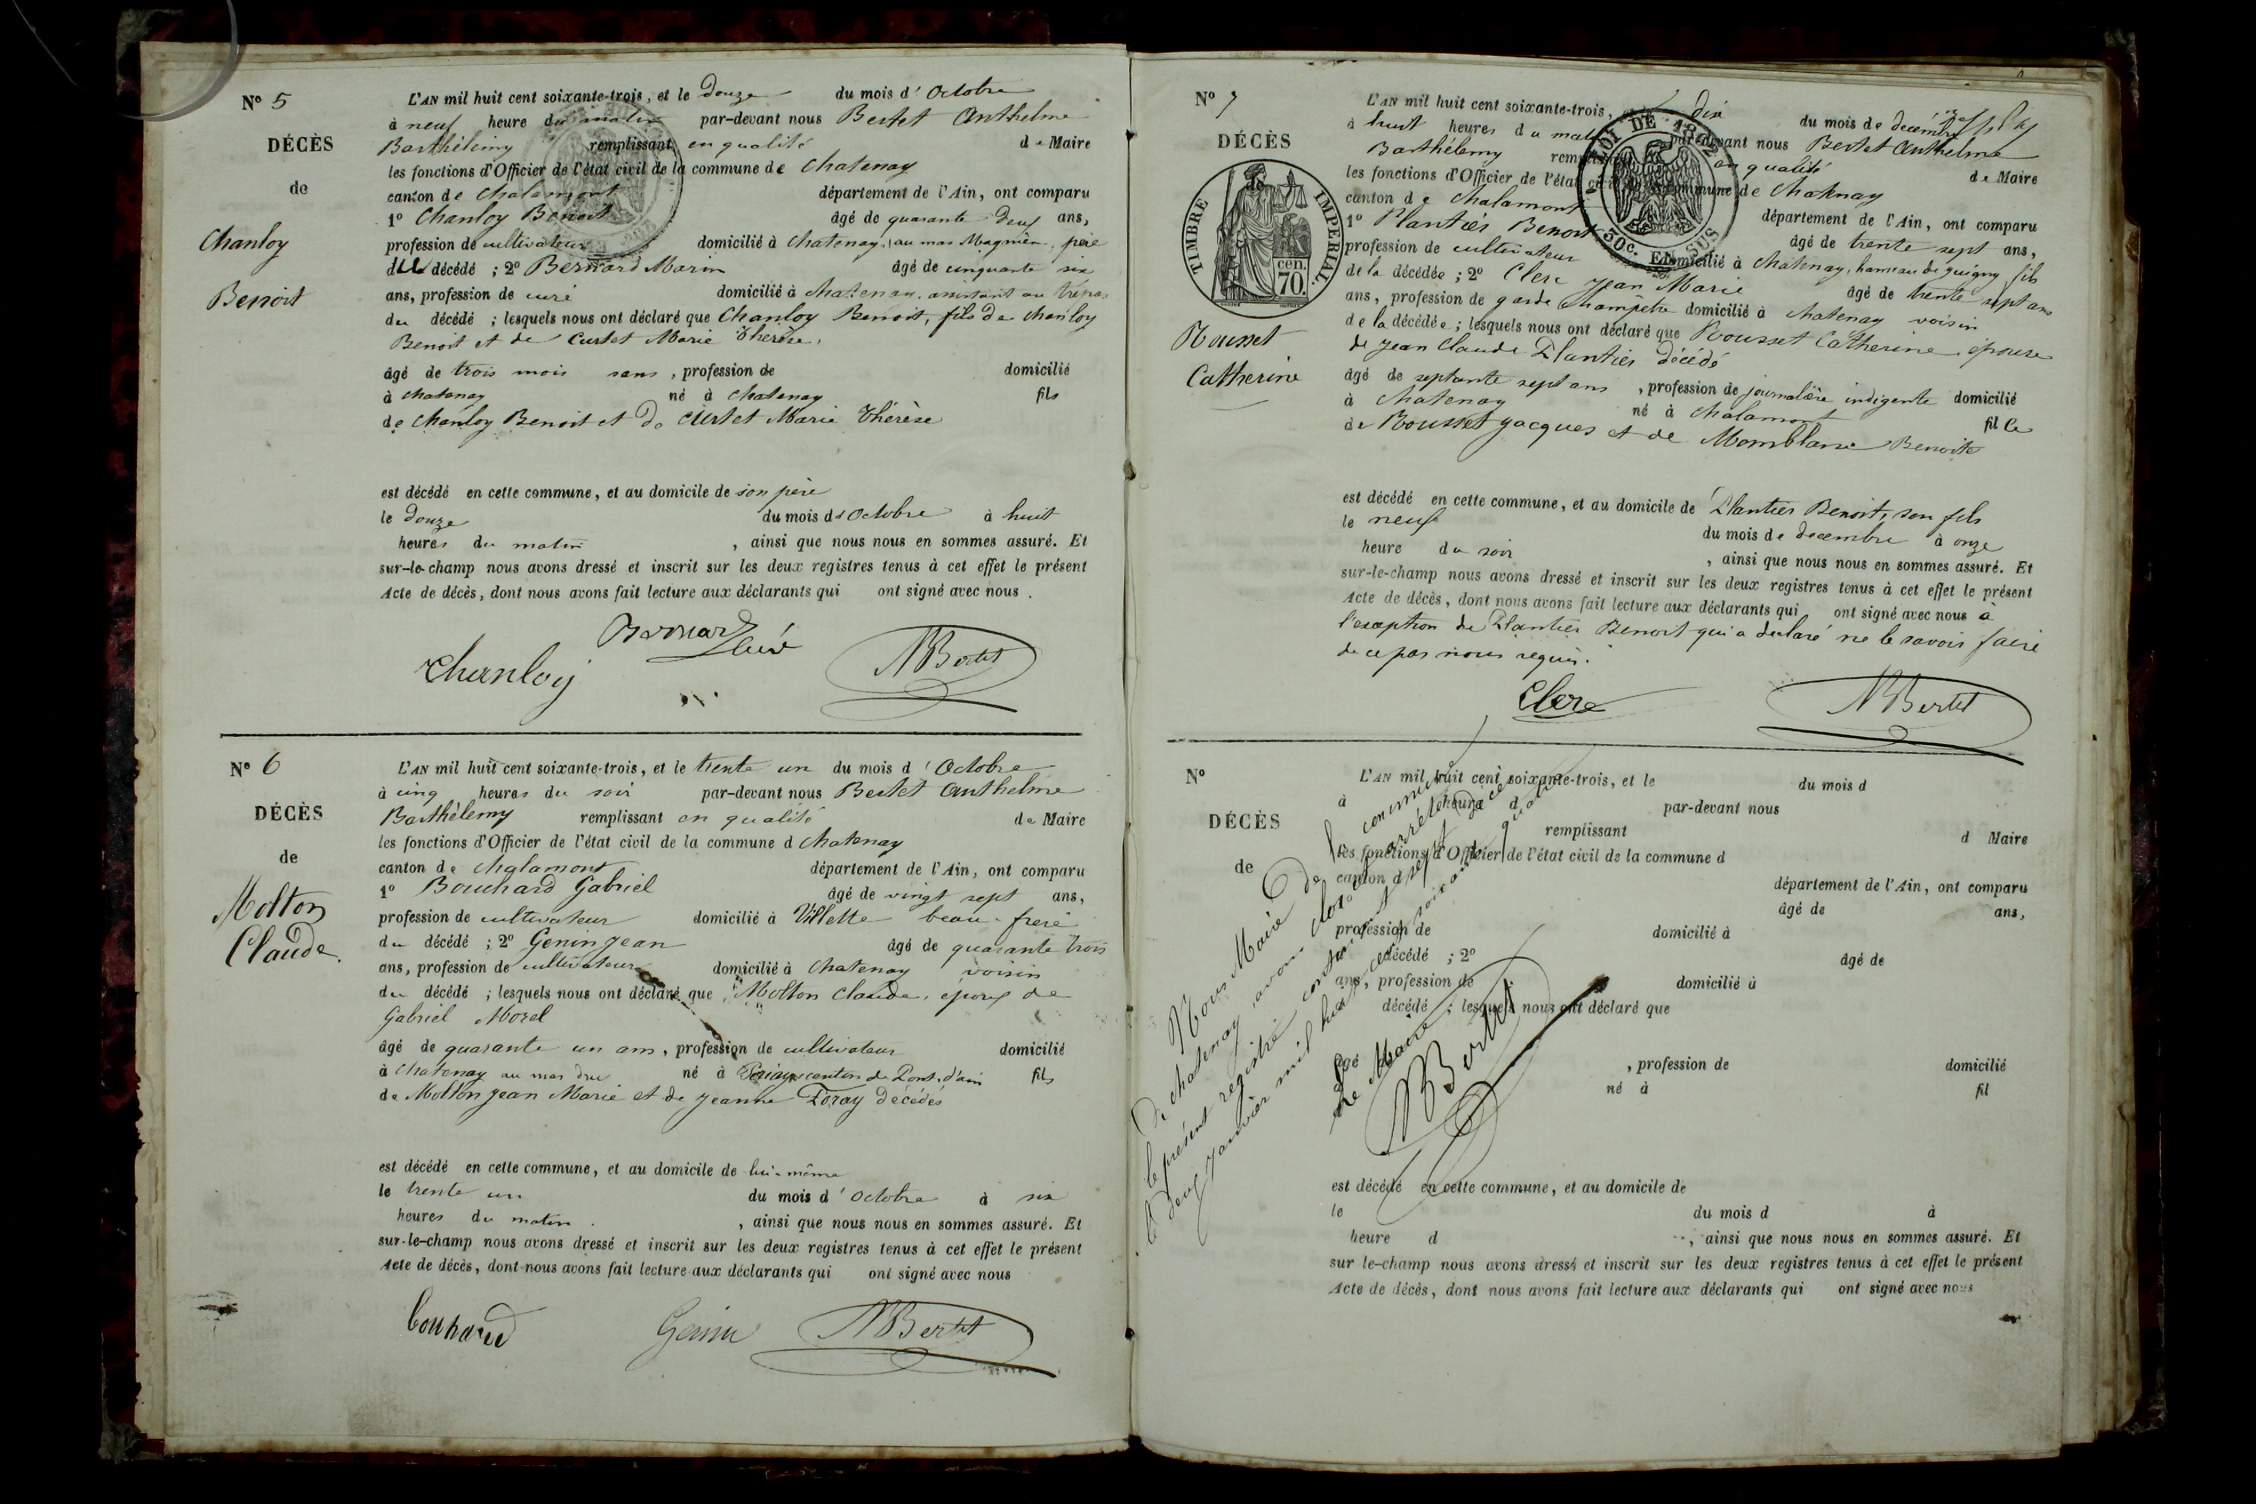 N° 5
DÉCÈS
de
Chanloy
Benoit
L'AN mil huit cent soixante-trois, et le douze du mois d'Octobre
à neuf heure du matin par-devant nous Bertet Anthelme
Barthélemy remplissant en qualité de Maire
les fonctions d'Officier de l'état civil de la commune de Chatenay
canton de Chalamont département de l'Ain, ont comparu
1° Chanloy Benoit âgé de quarante deux ans,
profession de cultivateur domicilié à Chatenay, au mas Magnien, père
du décédé ; 2° Bernard Marin âgé de cinquante six
ans, profession de curé domicilié à Chatenay, assistant au trépas
du décédé ; lesquels nous ont déclaré que Chanloy Benoit, fils de Chanloy
Benoit et de Curtet Marie Thérèse,
âgé de trois mois sans, profession de domicilié
à Chatenay né à Chatenay fils
de Chanloy Benoit et de Curtet Marie Thérèse
est décédé en cette commune, et au domicile de son père
le douze du mois d'Octobre à huit
heures du matin, ainsi que nous nous en sommes assuré. Et
sur-le-champ nous avons dressé et inscrit sur les deux registres tenus à cet effet le présent
Acte de décès, dont nous avons fait lecture aux déclarants qui ont signé avec nous.
Bernard curé
Chanloy
Bertet
N° 6
DÉCÈS
de
Molton
Claude.
L'AN mil huit cent soixante-trois, et le trente un du mois d'Octobre
à cinq heures du soir par-devant nous Bertet Anthelme
Barthélemy remplissant en qualité de Maire
les fonctions d'Officier de l'état civil de la commune d Chatenay
canton de Chalamont département de l'Ain, ont comparu
1° Bouchard Gabriel âgé de vingt sept ans,
profession de cultivateur domicilié à Villette beau-frere
du décédé ; 2° Genin jean âgé de quarante trois
ans, profession de cultivateur domicilié à Chatenay voisin
du décédé ; lesquels nous ont déclaré que Molton Claude, époux de
Gabriel Morel
âgé de quarante un ans, profession de cultivateur domicilié
à Chatenay au mas dru né à canton de Pont-d'ain fils
de Molton jean Marie et de jeanne Foray décédés
est décédé en cette commune, et au domicile de lui-même
le trente un du mois d'Octobre à six
heures du matin, ainsi que nous nous en sommes assuré. Et
sur-le-champ nous avons dressé et inscrit sur les deux registres tenus à cet effet le présent
Acte de décès, dont nous avons fait lecture aux déclarants qui ont signé avec nous
Bouhard Genin Bertet
N° 7
DÉCÈS
TIMBRE IMPERIAL.
cen. 70.
Rousset
Catherine
LOI DE 1862
30c. EN SUS
L'AN mil huit cent soixante-trois, dix du mois de decembre
à huit heures du matin par-devant nous Bertet Anthelme
Barthélemy remplissant en qualité de Maire
les fonctions d'Officier de l'état civil de la commune de Chatenay
canton de Chalamont département de l'Ain, ont comparu
1° Plantier Benoit âgé de trente sept ans,
profession de cultivateur domicilié à Chatenay, hameau de guigny fils
de la décédée ; 2° Clerc jean Marie âgé de trente sept ans
ans, profession de garde champêtre domicilié à Chatenay voisin
de la décédée ; lesquels nous ont déclaré que Rousset Catherine épouse
de jean Claude Plantier décédé
âgé de septante sept ans, profession de journalière indigente domicilié
à Chatenay né à Chalamont fille
de Rousset jacques et de Momblanc Benoite
est décédé en cette commune, et au domicile de Plantier Benoit, son fils
le neuf du mois de decembre à onze
heure du soir, ainsi que nous nous en sommes assuré. Et
sur-le-champ nous avons dressé et inscrit sur les deux registres tenus à cet effet le présent
Acte de décès, dont nous avons fait lecture aux déclarants qui ont signé avec nous à
l'exception de Plantier Benoit qui a declaré ne le savoir faire
de ce par nous requis.
Clerc Bertet
N°
DÉCÈS
de
L'AN mil huit cent soixante-trois, et le du mois d
à heure d par-devant nous
remplissant d Maire
les fonctions d'Officier de l'état civil de la commune d
canton d département de l'Ain, ont comparu
âgé de ans,
profession de domicilié à
décédé ; 2° âgé de
ans, profession de domicilié à
décédé ; lesquels nous ont déclaré que
âgé , profession de domicilié
né à fil
est décédé en cette commune, et au domicile de
le du mois d à
heure d , ainsi que nous nous en sommes assuré. Et
sur le-champ nous avons dressé et inscrit sur les deux registres tenus à cet effet le présent
Acte de décès, dont nous avons fait lecture aux déclarants qui ont signé avec nous
Nous Maire de la commune
de Chatenay, avons clos et arrêté
le présent registre contenant sept décès
le deux janvier mil huit cent soixante quatre
Le Maire
Bertet